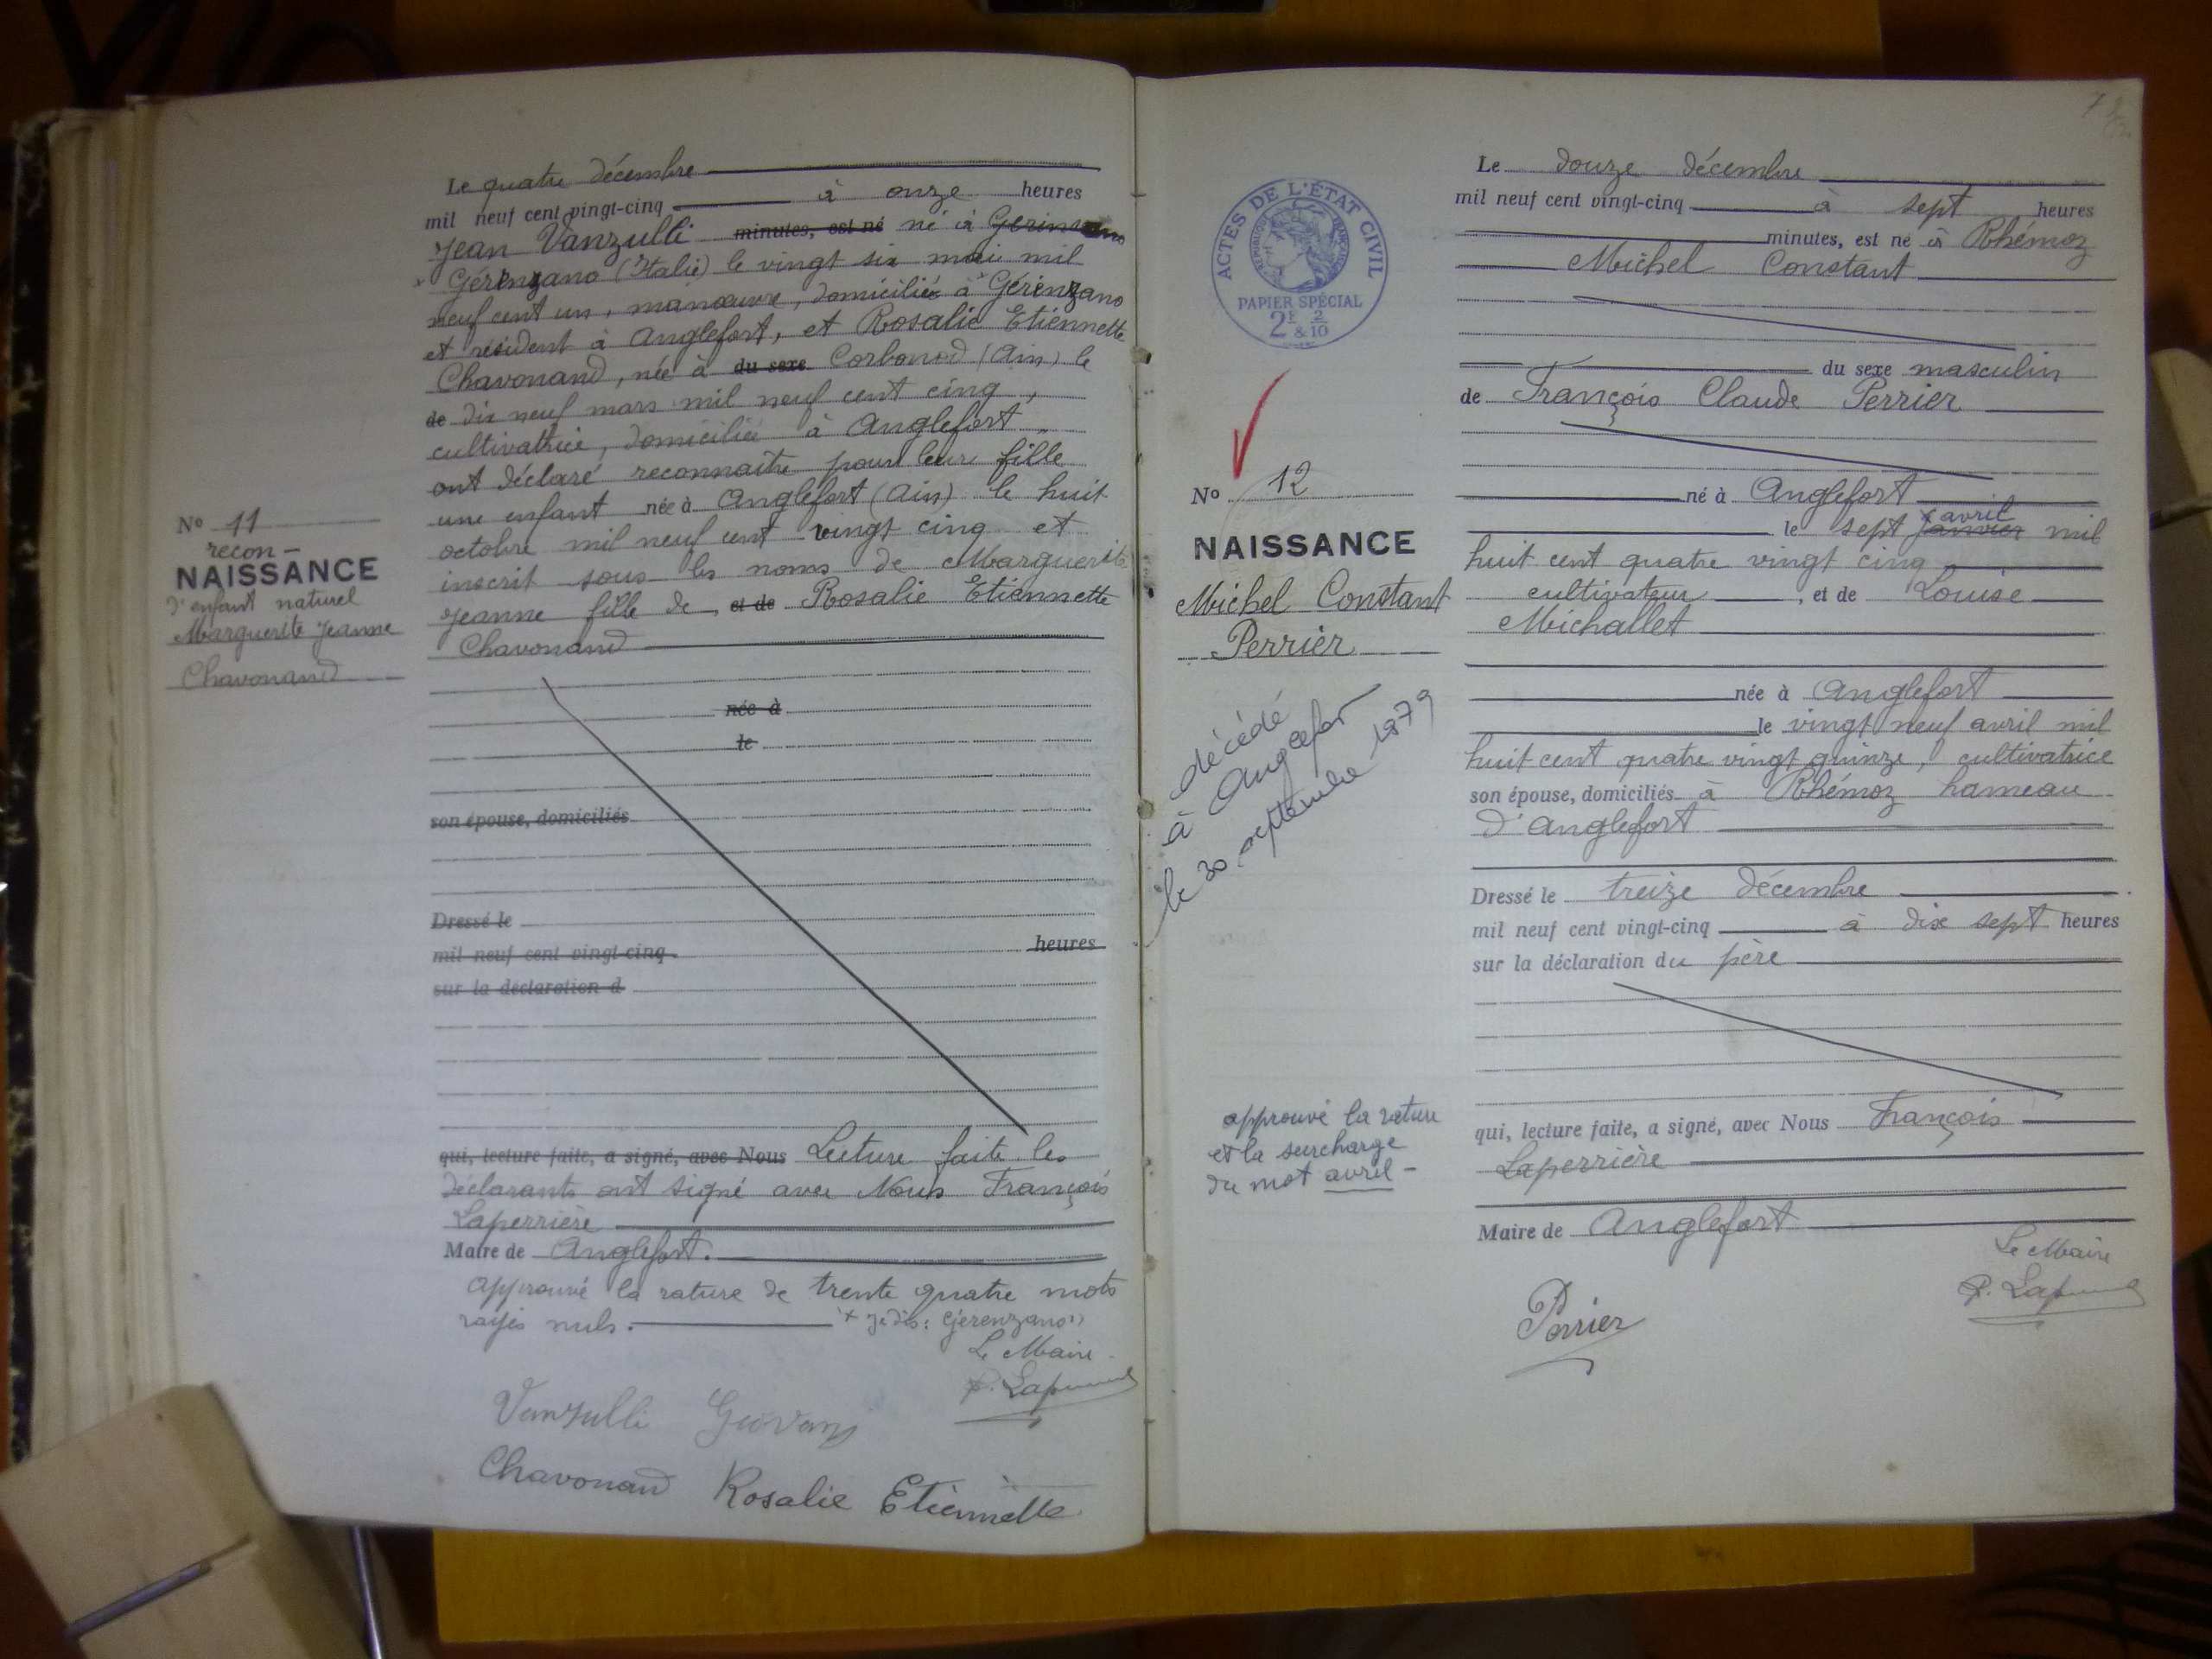 Le quatre décembre
mil neuf cent vingt-cinq à onze heures
Jean Vanzulli minutes, est né né à
Gérenzano (Italie) le vingt six mai mil
neuf cent un, manœuvre, domicilié à Gérenzano
et résident à Anglefort, et Rosalie Etiennette
Chavonand, née à du sexe Corbonod (Ain) le
de dix neuf mars mil neuf cent cinq,
cultivatrice, domiciliée à Anglefort,
ont déclaré reconnaitre pour leur fille
une enfant née à Anglefort (Ain) le huit
octobre mil neuf cent vingt cinq et
inscrit sous les noms de Marguerite
Jeanne fille de, et de Rosalie Etiennette
Chavonand
née à
le
son épouse, domiciliés
Dressé le
mil neuf cent vingt-cinq heures
sur la déclaration d
qui, lecture faite, a signé, avec Nous Lecture faite les
déclarants ont signé avec Nous François
Laperrière
Maire de Anglefort.
Approuvé la rature de trente quatre mots
rayés nuls. + je dis: Gerenzano
Le Maire
F. Laperrière
Vanzulli Giovani
Chavonand Rosalie Etiennette
No 11
recon-
NAISSANCE
d'enfant naturel
Marguerite Jeanne
Chavonand
ACTES DE L'ÉTAT CIVIL
RÉPUBLIQUE FRANÇAISE
PAPIER SPÉCIAL
2F 2
& 10
No 12
NAISSANCE
Michel Constant
Perrier
décédé
à Anglefort
le 30 septembre 1979
approuvé la rature
et la surcharge
du mot avril -
Le douze décembre
mil neuf cent vingt-cinq à sept heures
minutes, est né à Rhémoz
Michel Constant
du sexe masculin
de François Claude Perrier
né à Anglefort
avril
le sept janvier mil
huit cent quatre vingt cinq
cultivateur, et de Louise
Michallet
née à Anglefort
le vingt neuf avril mil
huit cent quatre vingt quinze, cultivatrice
son épouse, domiciliés à Rhémoz hameau
d'Anglefort
Dressé le treize décembre
mil neuf cent vingt-cinq à dix sept heures
sur la déclaration du père
qui, lecture faite, a signé, avec Nous François
Laperrière
Maire de Anglefort
Le Maire
F. Laperrière
Perrier